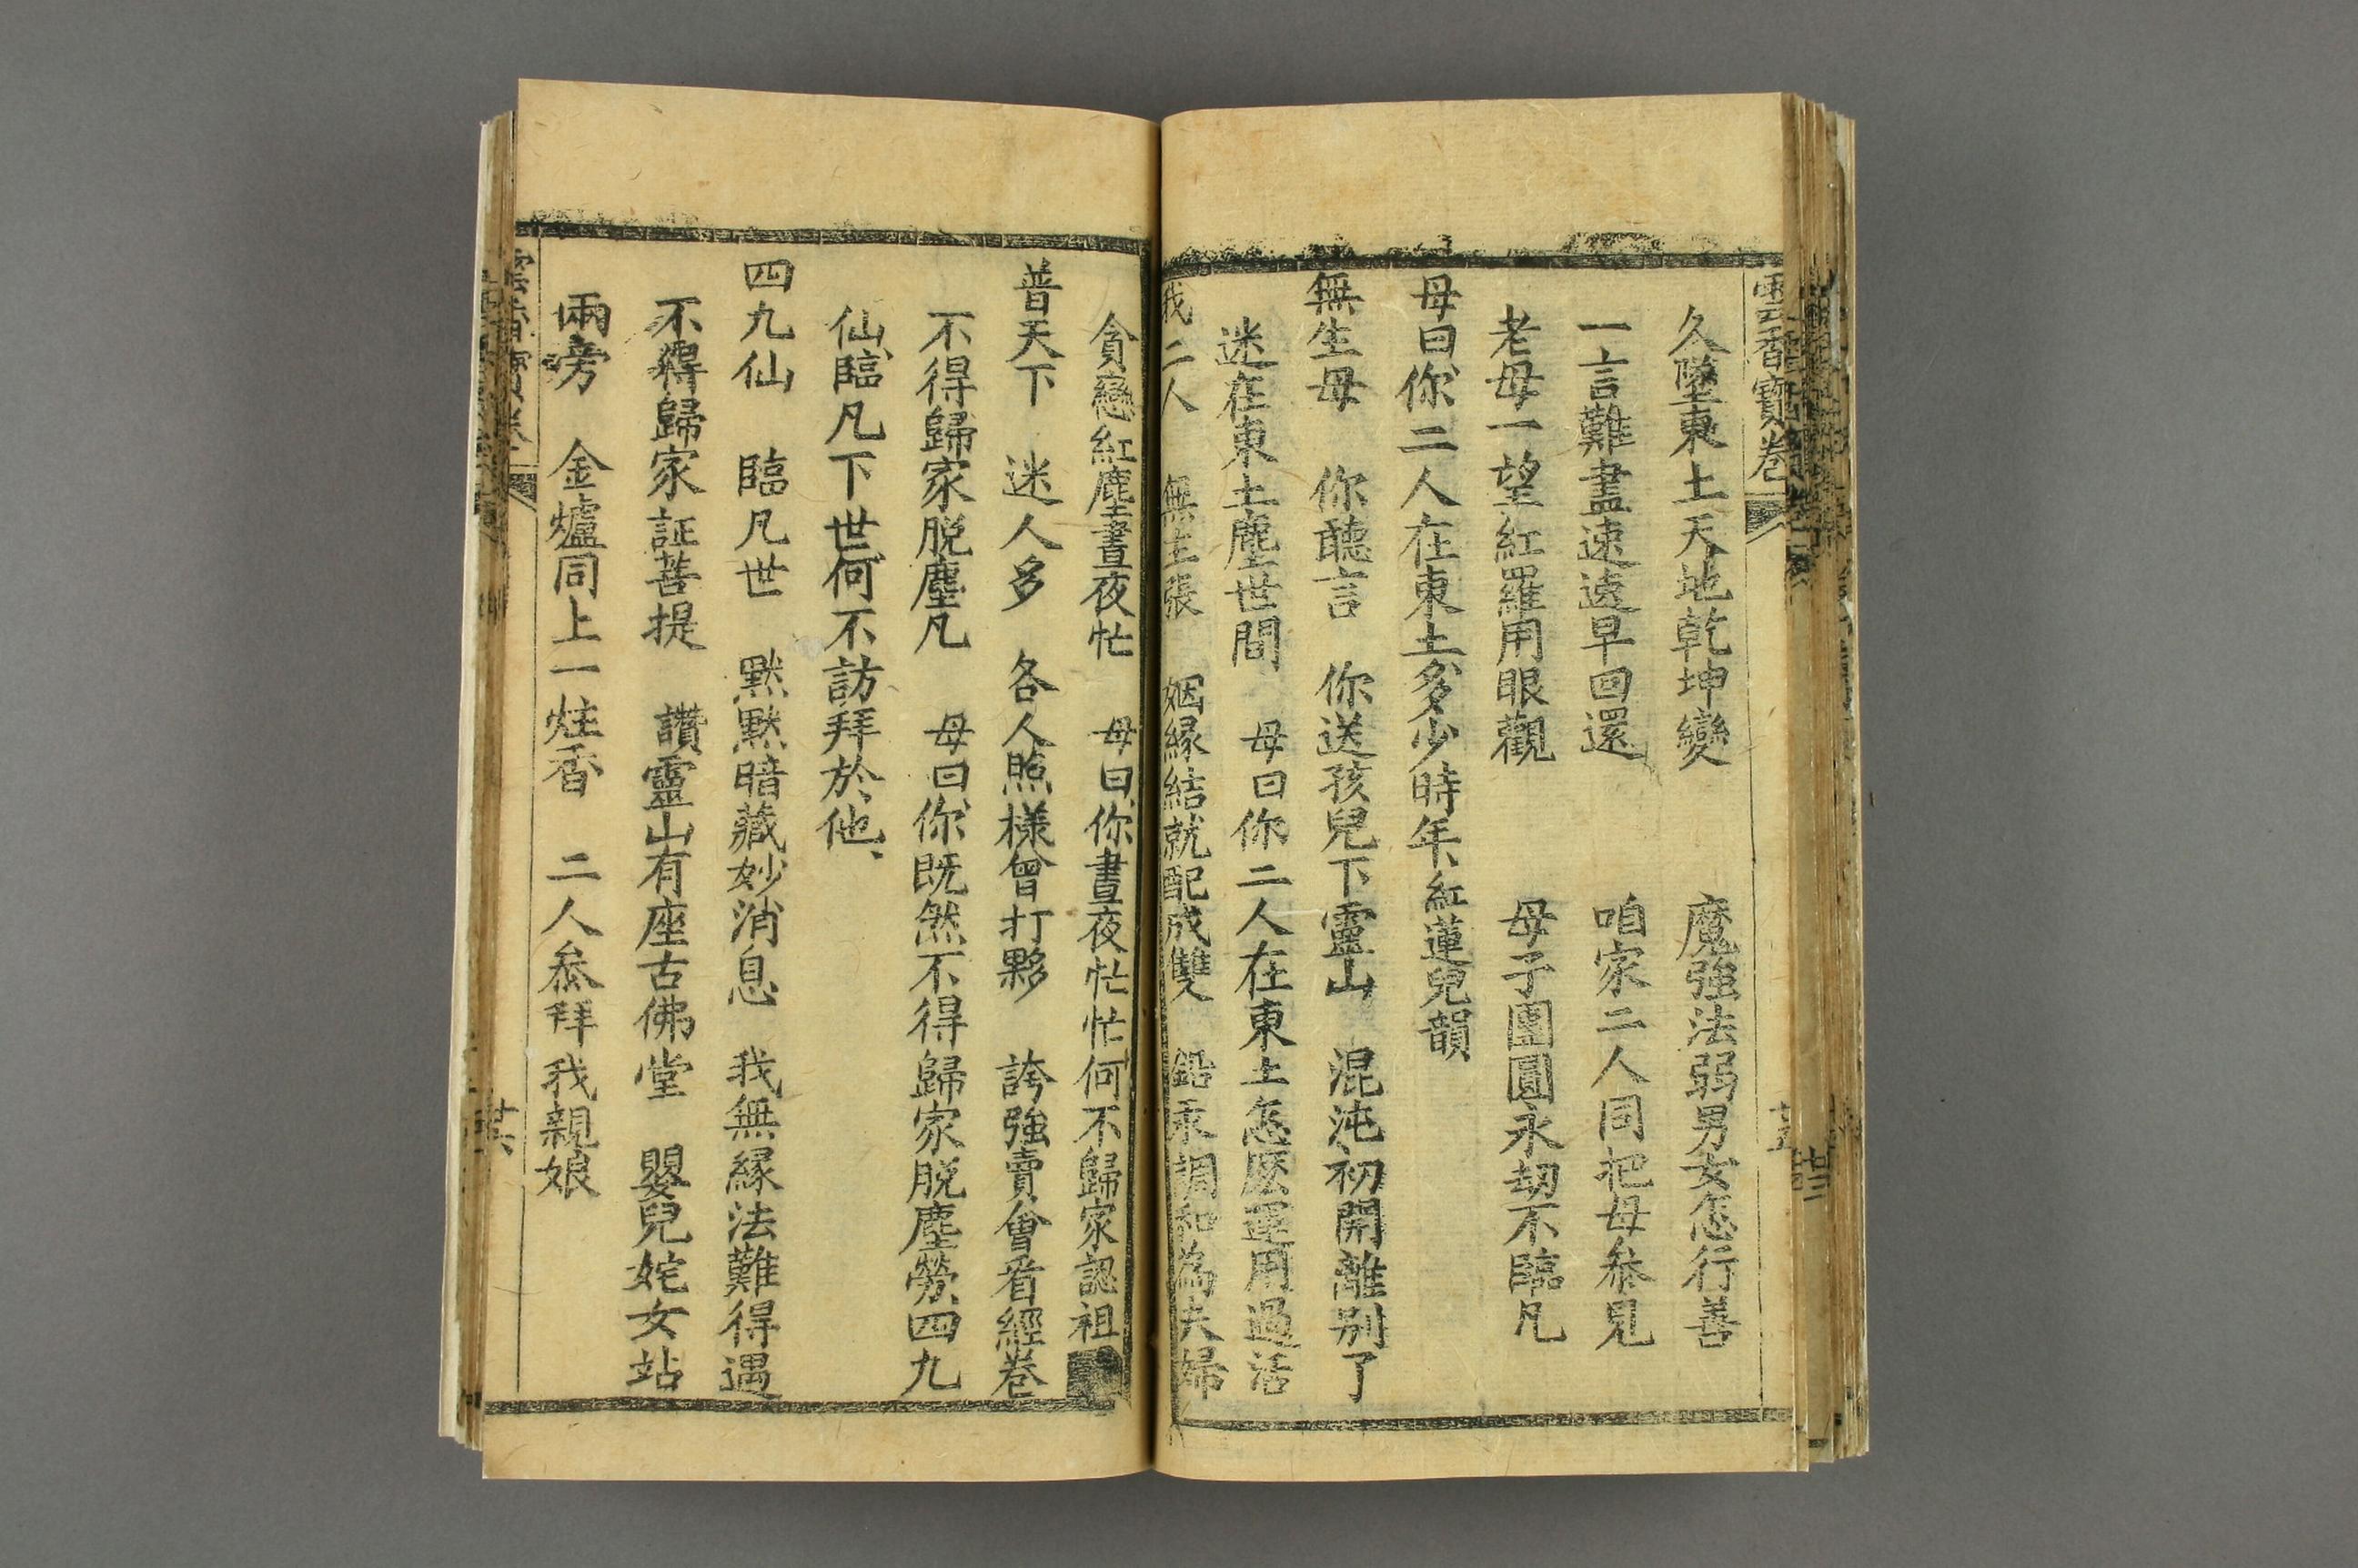 雲香寶卷
久墜東土天地乾坤變　魔強法弱男女怎行善
一言難盡速速早回還　咱家二人同把母叅見
老母一望紅羅用眼觀　母子團圓永刼不臨凡
母曰你二人在東土多少時年、紅蓮兒韻
無生母　你聽言　你送孩兒下靈山　混沌初開離別了
迷在東土塵世間　母曰你二人在東土怎麽運用過活
我二人　無主張　姻縁結就配成雙　鉛汞調和為夫婦
貪戀紅塵晝夜忙　母曰你晝夜忙忙何不歸家認祖
普天下　迷人多　各人照樣會打夥　誇強賣會看經卷
不得歸家脱塵凡　母曰你既然不得歸家脱塵勞、四九
仙、臨凡下世、何不訪拜於、他、
四九仙　臨凡世　黙黙暗藏妙消息　我無緣法難得遇
不得歸家証菩提　讚靈山有座古佛堂　嬰兒姹女站
兩旁　金爐同上一炷香　二人叅拜我親娘